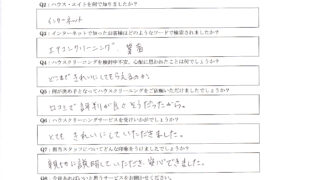 Q1：ハウス・エイトを何で知りましたか？
インターネット
Q2：インターネットで知ったお客様はどのようなワードで検索されましたか？
エアコンクリーニング、
Q3：ハウスクリーニングを検討中不安、心配に思われたことは何でしょうか？
どこまできれいにしてもらえるのか。
Q5：何が決め手となってハウスクリーニングをご依頼いただけましたでしょうか？
口コミで評判が良さそうだったから。
Q6：ハウスクリーニングサービスを受けいかがでしたか？
とてもきれいにしていただきました。
Q7：担当スタッフについてどんな印象をうけましたでしょうか？
親切に説明していただき、安心できました。
Q8：今後あればいいと思うサービスをお聞かせください。